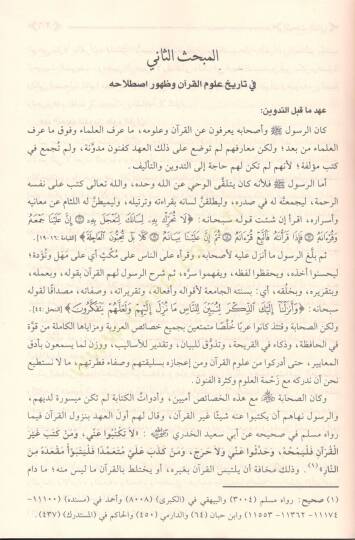 المبحث الثاني
في تاريخ علوم القرآن وظهور اصطلاحه
عهد ما قبل التدوين:
كان الرسول ﷺ وأصحابه يعرفون عن القرآن وعلومه، ما عرف العلماء وفوق ما عرف
العلماء من بعد؛ ولكن معارفهم لم توضع على ذلك العهد كفنون مدوَّنة، ولم تُجمع في
كتب مؤلفة؛ لأنهم لم تكن لهم حاجة إلى التدوين والتأليف.
أما الرسول ﷺ فلأنه كان يتلقَّى الوحي عن الله وحده، والله تعالى كتب على نفسه
الرحمة، ليجمعنَّه له في صدره، وليطلقنَّ لسانه بقراءته وترتيله، وليميطنَّ له اللثام عن معانيه
وأسراره، اقرأ إن شئت قوله سبحانه: ﴿لَا تُحَرِّكْ بِهِ لِسَانَكَ لِتَعْجَلَ بِهِ إِنَّ عَلَيْنَا جَمْعَهُ
وَقُرْءَانَهُ فَإِذَا قَرَأْنَاهُ فَاتَّبِعْ قُرْءَانَهُ ثُمَّ إِنَّ عَلَيْنَا بَيَانَهُ كَلَّا بَلْ تُحِبُّونَ الْعَاجِلَةَ﴾
ثم بلَّغ الرسول ما أنزل عليه لأصحابه، وقرأه على الناس على مُكْثٍ أي على مَهَل وتُؤَدة؛
ليحسنوا أخذه، ويحفظوا لفظه، ويفهموا سرَّه، ثم شرح الرسول لهم القرآن بقوله، وبعمله،
وبتقريره، وبخُلُقه، أي: بسنَّته الجامعة لأقواله وأفعاله، وتقريراته، وصفاته، مصداقًا لقوله
سبحانه: ﴿وَأَنزَلْنَا إِلَيْكَ الذِّكْرَ لِتُبَيِّنَ لِلنَّاسِ مَا نُزِّلَ إِلَيْهِمْ وَلَعَلَّهُمْ يَتَفَكَّرُونَ﴾ [النحل: ٤٤].
ولكن الصحابة وقتئذ كانوا عربًا خُلَّصًا متمتعين بجميع خصائص العروبة ومزاياها الكاملة من قوَّة
في الحافظة، وذكاء في القريحة، وتذوُّق للبيان، وتقدير للأساليب، ووزن لما يسمعون بأدق
المعايير، حتى أدركوا من علوم القرآن ومن إعجازه بسليقتهم وصفاء فطرتهم، ما لا نستطيع
نحن أن ندركه مع زَحْمة العلوم وكثرة الفنون.
وكان الصحابة مع هذه الخصائص أميين، وأدواتُ الكتابة لم تكن ميسورة لديهم،
والرسول نهاهم أن يكتبوا عنه شيئًا غير القرآن، وقال لهم أول العهد بنزول القرآن فيما
رواه مسلم في صحيحه عن أبي سعيد الخدري : «لا تَكْتُبُوا عنِّي، وَمَنْ كَتَبَ غَيْرَ
الْقُرْآنِ فَلْيَمْحُهُ، وَحَدِّثُوا عنِّي وَلا حَرَجَ، وَمَنْ كَذَبَ عَلَيَّ مُتَعَمِّدًا فَلْيَتَبَوَّأْ مَقْعَدَهُ مِنَ
النَّارِ»(١). وذلك مخافة أن يلتبس القرآن بغيره، أو يختلط بالقرآن ما ليس منه؛ ما دام
(١) صحيح: رواه مسلم (٣٠٠٤) والبيهقي في (الكبرى) (٨٠٠٨) وأحمد في (مسنده) (١١١٠٠-
١١١٧٤-١١٣٦٢-١١٥٥٣) وابن حبان (٦٤) والدارمي (٤٥٠) والحاكم في (المستدرك) (٤٣٧).